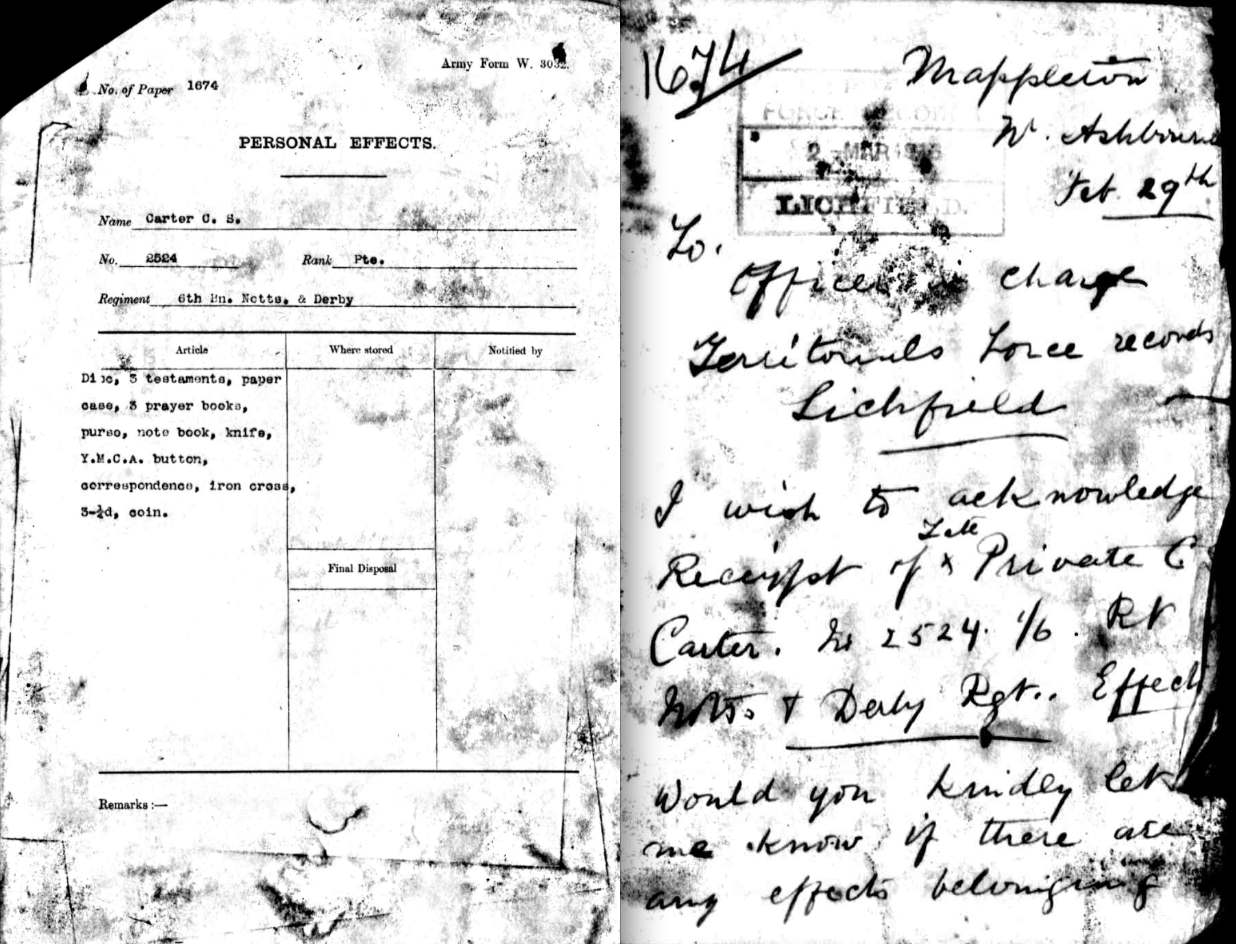 Army Form W. 3032.
No. of Paper 1674
PERSONAL EFFECTS.
Name Carter C. S.
No. 2524 Rank Pte.
Regiment 6th Bn. Notts. & Derby
Article Where stored Notified by
Disc, 3 testaments, paper
case, 3 prayer books,
purse, note book, knife,
Y.M.C.A. button,
correspondence, iron cross,
coin.
Final Disposal
Remarks :—
1674
Mappleton
Nr. Ashbourne
Feb 29th
2 MAR
LICHFIELD.
To.
Officer in charge
Territorials Force records
Lichfield
I wish to acknowledge
Late
Receipt of x Private C
Carter. No 2524. 1/6. Rt
Notts. & Derby Rgt.. Effects
Would you kindly let
me know if there are
any effects belonging